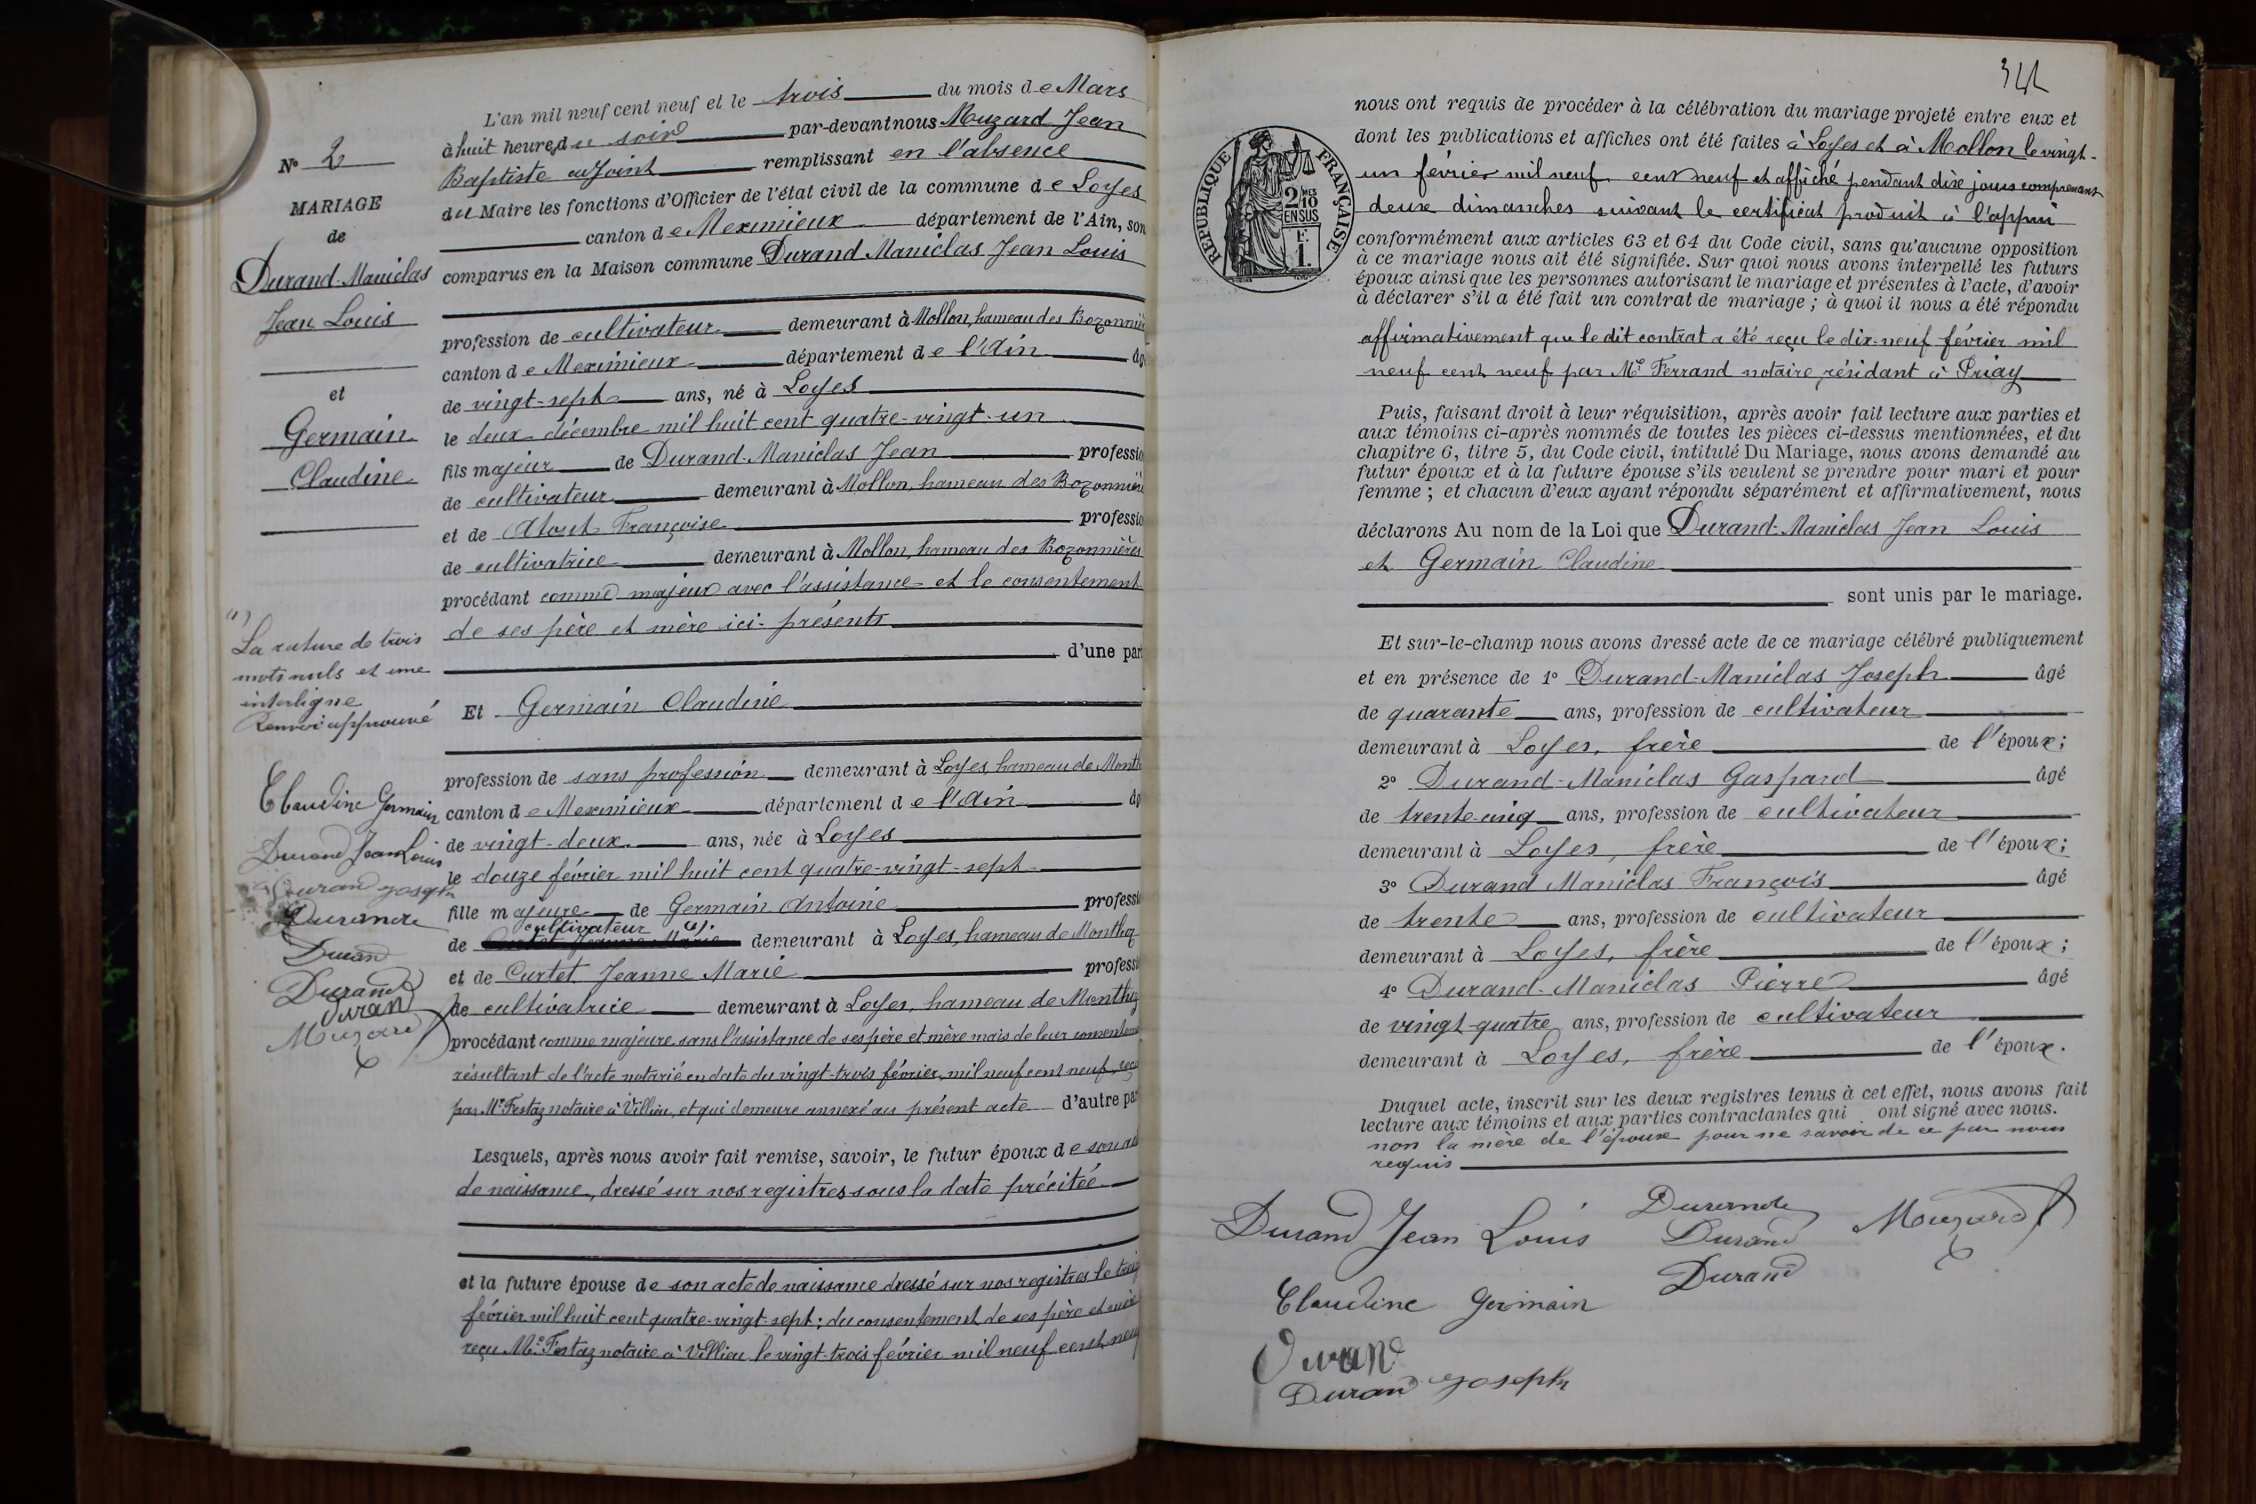 N° 2
MARIAGE
de
Durand-Maniclas
Jean Louis
et
Germain
Claudine
(1)
La rature de trois
mots nuls et une
interligne
Renvoi approuvé
Claudine Germain
Durand Jean Louis
Durand Joseph
Durand
Durand
Durand
Mugard
L'an mil neuf cent neuf et le trois du mois de Mars
à huit heures du soir par-devant nous Muzard Jean
Baptiste adjoint remplissant en l'absence
du Maire les fonctions d'Officier de l'état civil de la commune de Loyes
canton de Meximieux département de l'Ain, son
comparus en la Maison commune Durand Maniclas Jean Louis
profession de cultivateur demeurant à Mollon, hameau des Bozonniè
canton de Meximieux département de l'Ain âg
de vingt-sept ans, né à Loyes
le deux décembre mil huit cent quatre-vingt-un
fils majeur de Durand-Maniclas Jean professio
de cultivateur demeurant à Mollon, hameau des Bozonniè
et de Atout Françoise professio
de cultivatrice demeurant à Mollon, hameau des Bozonnières
procédant comme majeur avec l'assistance et le consentement
de ses père et mère ici-présents
d'une par
Et Germain Claudine
profession de sans profession demeurant à Loyes, hameau de Month
canton de Meximieux département de l'Ain âg
de vingt-deux ans, née à Loyes
le douze février mil huit cent quatre-vingt-sept
fille majeure de Germain Antoine professi
cultivateur (1)
de demeurant à Loyes, hameau de Montha
et de Curtet Jeanne Marie professi
de cultivatrice demeurant à Loyes, hameau de Monthoz
procédant comme majeure sans l'assistance de ses père et mère mais de leur consentem
résultant de l'acte notarié en date du vingt-trois février mil neuf cent neuf, reçu
par Me Festaz notaire à Villieu, et qui demeure annexé au présent acte d'autre par
Lesquels, après nous avoir fait remise, savoir, le futur époux de son acte
de naissance, dressé sur nos registres sous la date précitée
et la future épouse de son acte de naissance dressé sur nos registres le treiz
février mil huit cent quatre-vingt-sept; du consentement de ses père et mèr
reçu Me Festaz notaire à Villieu le vingt-trois février mil neuf cent neuf
REPUBLIQUE FRANÇAISE
2 MES
10
EN SUS
1 F.
nous ont requis de procéder à la célébration du mariage projeté entre eux et
dont les publications et affiches ont été faites à Loyes et à Mollon le vingt-
un février mil neuf cent neuf et affiché pendant dix jours comprenant
deux dimanches suivant le certificat produit à l'appui
conformément aux articles 63 et 64 du Code civil, sans qu'aucune opposition
à ce mariage nous ait été signifiée. Sur quoi nous avons interpellé les futurs
époux ainsi que les personnes autorisant le mariage et présentes à l'acte, d'avoir
à déclarer s'il a été fait un contrat de mariage ; à quoi il nous a été répondu
affirmativement que le dit contrat a été reçu le dix-neuf février mil
neuf cent neuf par Me Ferrand notaire, résidant à Priay
Puis, faisant droit à leur réquisition, après avoir fait lecture aux parties et
aux témoins ci-après nommés de toutes les pièces ci-dessus mentionnées, et du
chapitre 6, titre 5, du Code civil, intitulé Du Mariage, nous avons demandé au
futur époux et à la future épouse s'ils veulent se prendre pour mari et pour
femme ; et chacun d'eux ayant répondu séparément et affirmativement, nous
déclarons Au nom de la Loi que Durand-Maniclas Jean Louis
et Germain Claudine
sont unis par le mariage.
Et sur-le-champ nous avons dressé acte de ce mariage célébré publiquement
et en présence de 1° Durand-Maniclas Joseph âgé
de quarante ans, profession de cultivateur
demeurant à Loyes, frère de l'époux;
2° Durand-Maniclas Gaspard âgé
de trente-cinq ans, profession de cultivateur
demeurant à Loyes, frère de l'époux;
3° Durand Maniclas François âgé
de trente ans, profession de cultivateur
demeurant à Loyes, frère de l'époux;
4° Durand-Maniclas Pierre âgé
de vingt-quatre ans, profession de cultivateur
demeurant à Loyes, frère de l'époux.
Duquel acte, inscrit sur les deux registres tenus à cet effet, nous avons fait
lecture aux témoins et aux parties contractantes qui ont signé avec nous.
non la mère de l'époux pour ne savoir de ce par nous
requis
Durand Jean Louis
Durand
Durand
Durand
Mugard
Claudine Germain
Durand
Durand Joseph